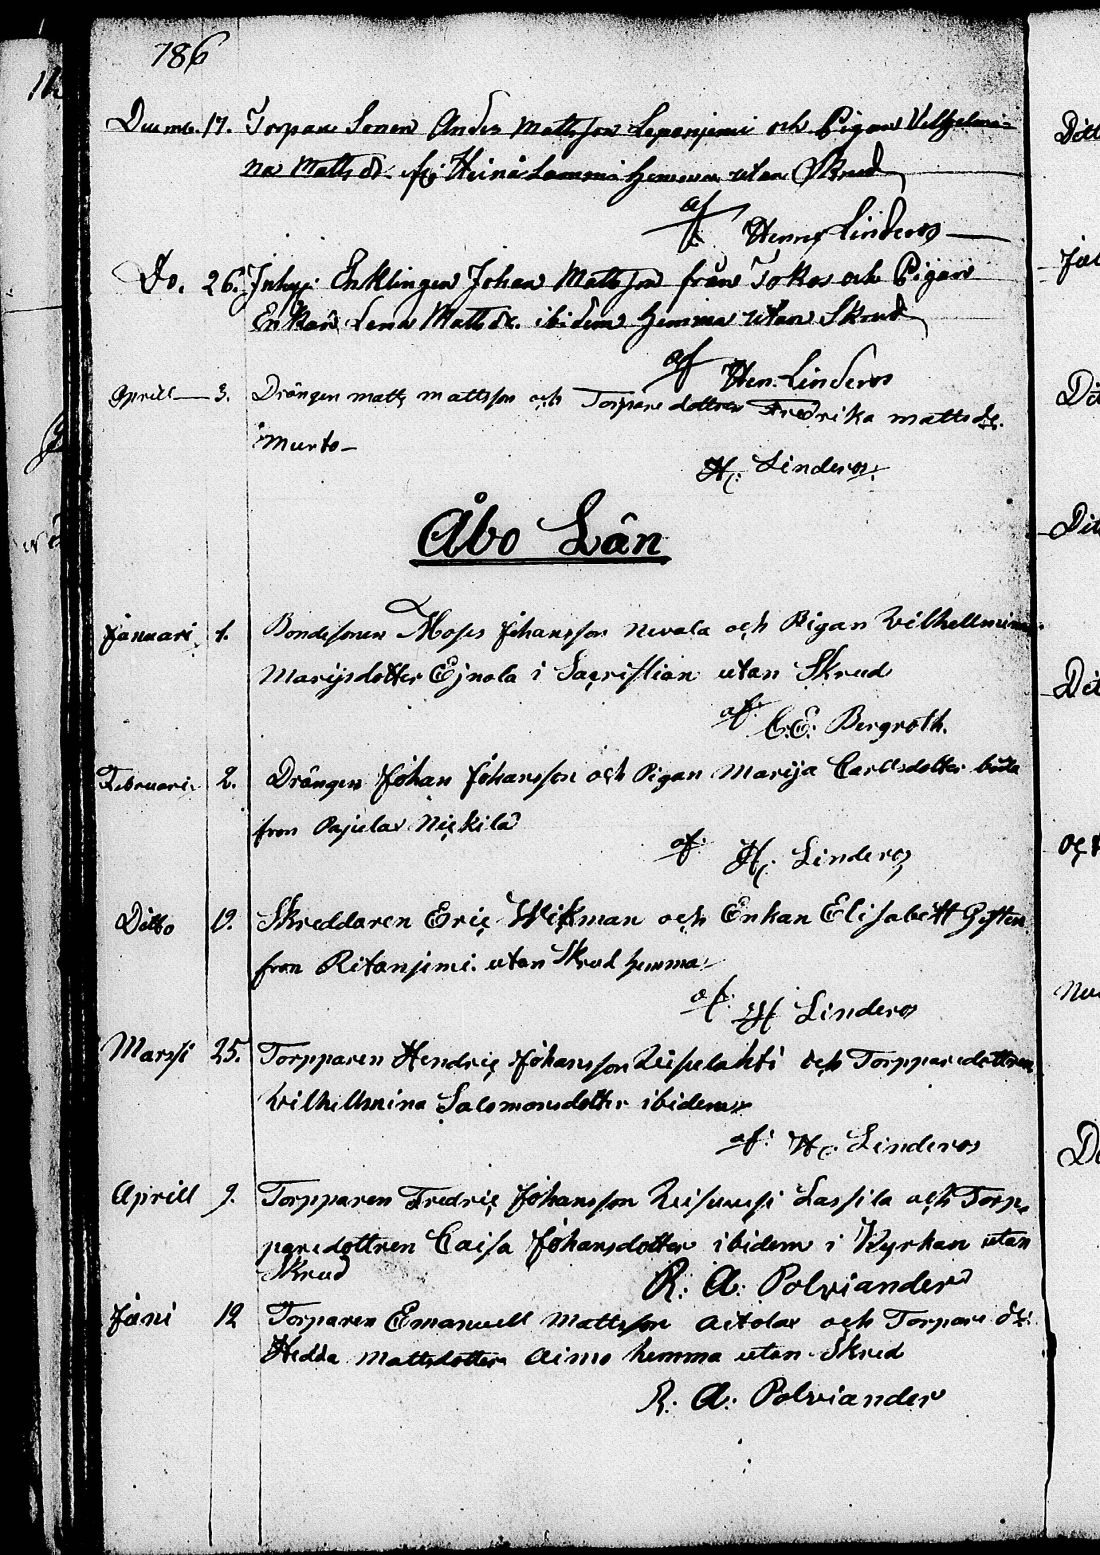 786
Decemb. 17. Torpare Sonen Anders Mattsson Lepänjemi och Pigan Vilhjelmi=
na Matts dr. fr: Heinä Lammi hemma utan Skrud
af Henr: Linderos
Do. 26. Inhys: Enklingen Johan Mattsson från Tokos och Pigan
Enkan Lena Matts dr. ibidem hemma utan Skrud
af Hen. Linderos
Aprill 3. Drängen matts mattsson och Torpare dottren Fredrika matts dr.
Murto
H: Linderos:
Åbo Län
Januari 1. Bondesonen Moses Johansson Nevala och Pigan Vilhellmina
Marijsdotter Ejnola i Sacristian utan Skrud
af: C: E: Bergroth.
Februari 2. Drängen Johan Johansson och Pigan Marija Carlsdotter båda
fron Pajula Nickilä
af: H: Linderos
Ditto 19. Skreddaren Eric Wikman och Enkan Elisabett
fron Ritanjemi. utan Skrud hemma
af: H Linderos
Marssi 25. Torpparen Hendric Johansson och Torpparedottren
Vilhellmina Salomonsdotter ibidem
af: H: Linderos
Aprill 9. Torpparen Fredric Johansson Lassila och Torp=
paredottren Caisa Johansdotter ibidem i Kyrkan utan
Skrud
R: A: Polviander
Juni 12 Torparen Emanuell Mattsson Aitola och Torpare dr:
Hedda Mattsdotter Aimo hemma utan Skrud
R: A: Polviander